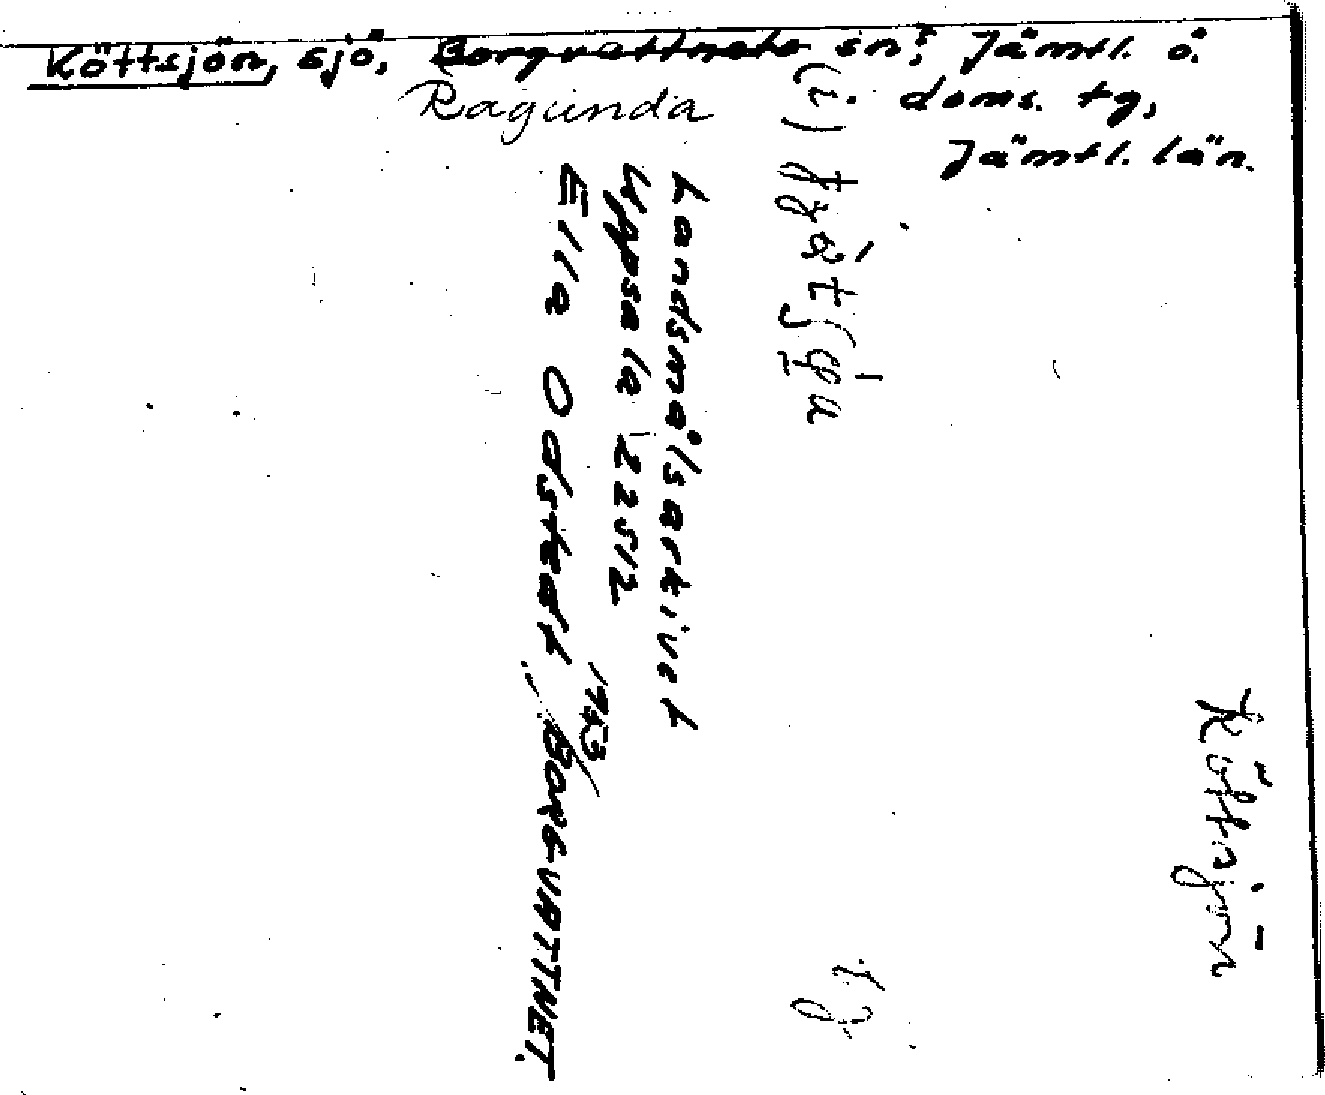 Köttsjön, sjö, Borgvattnets sn? Jämtl. ö.
Ragunda
doms. tg,
Jämtl. län.
(i)
Landsmålsarkivet
Uppsala 22512
1953
Ella Odstedt, BORGVATTNET.
Köttsjön